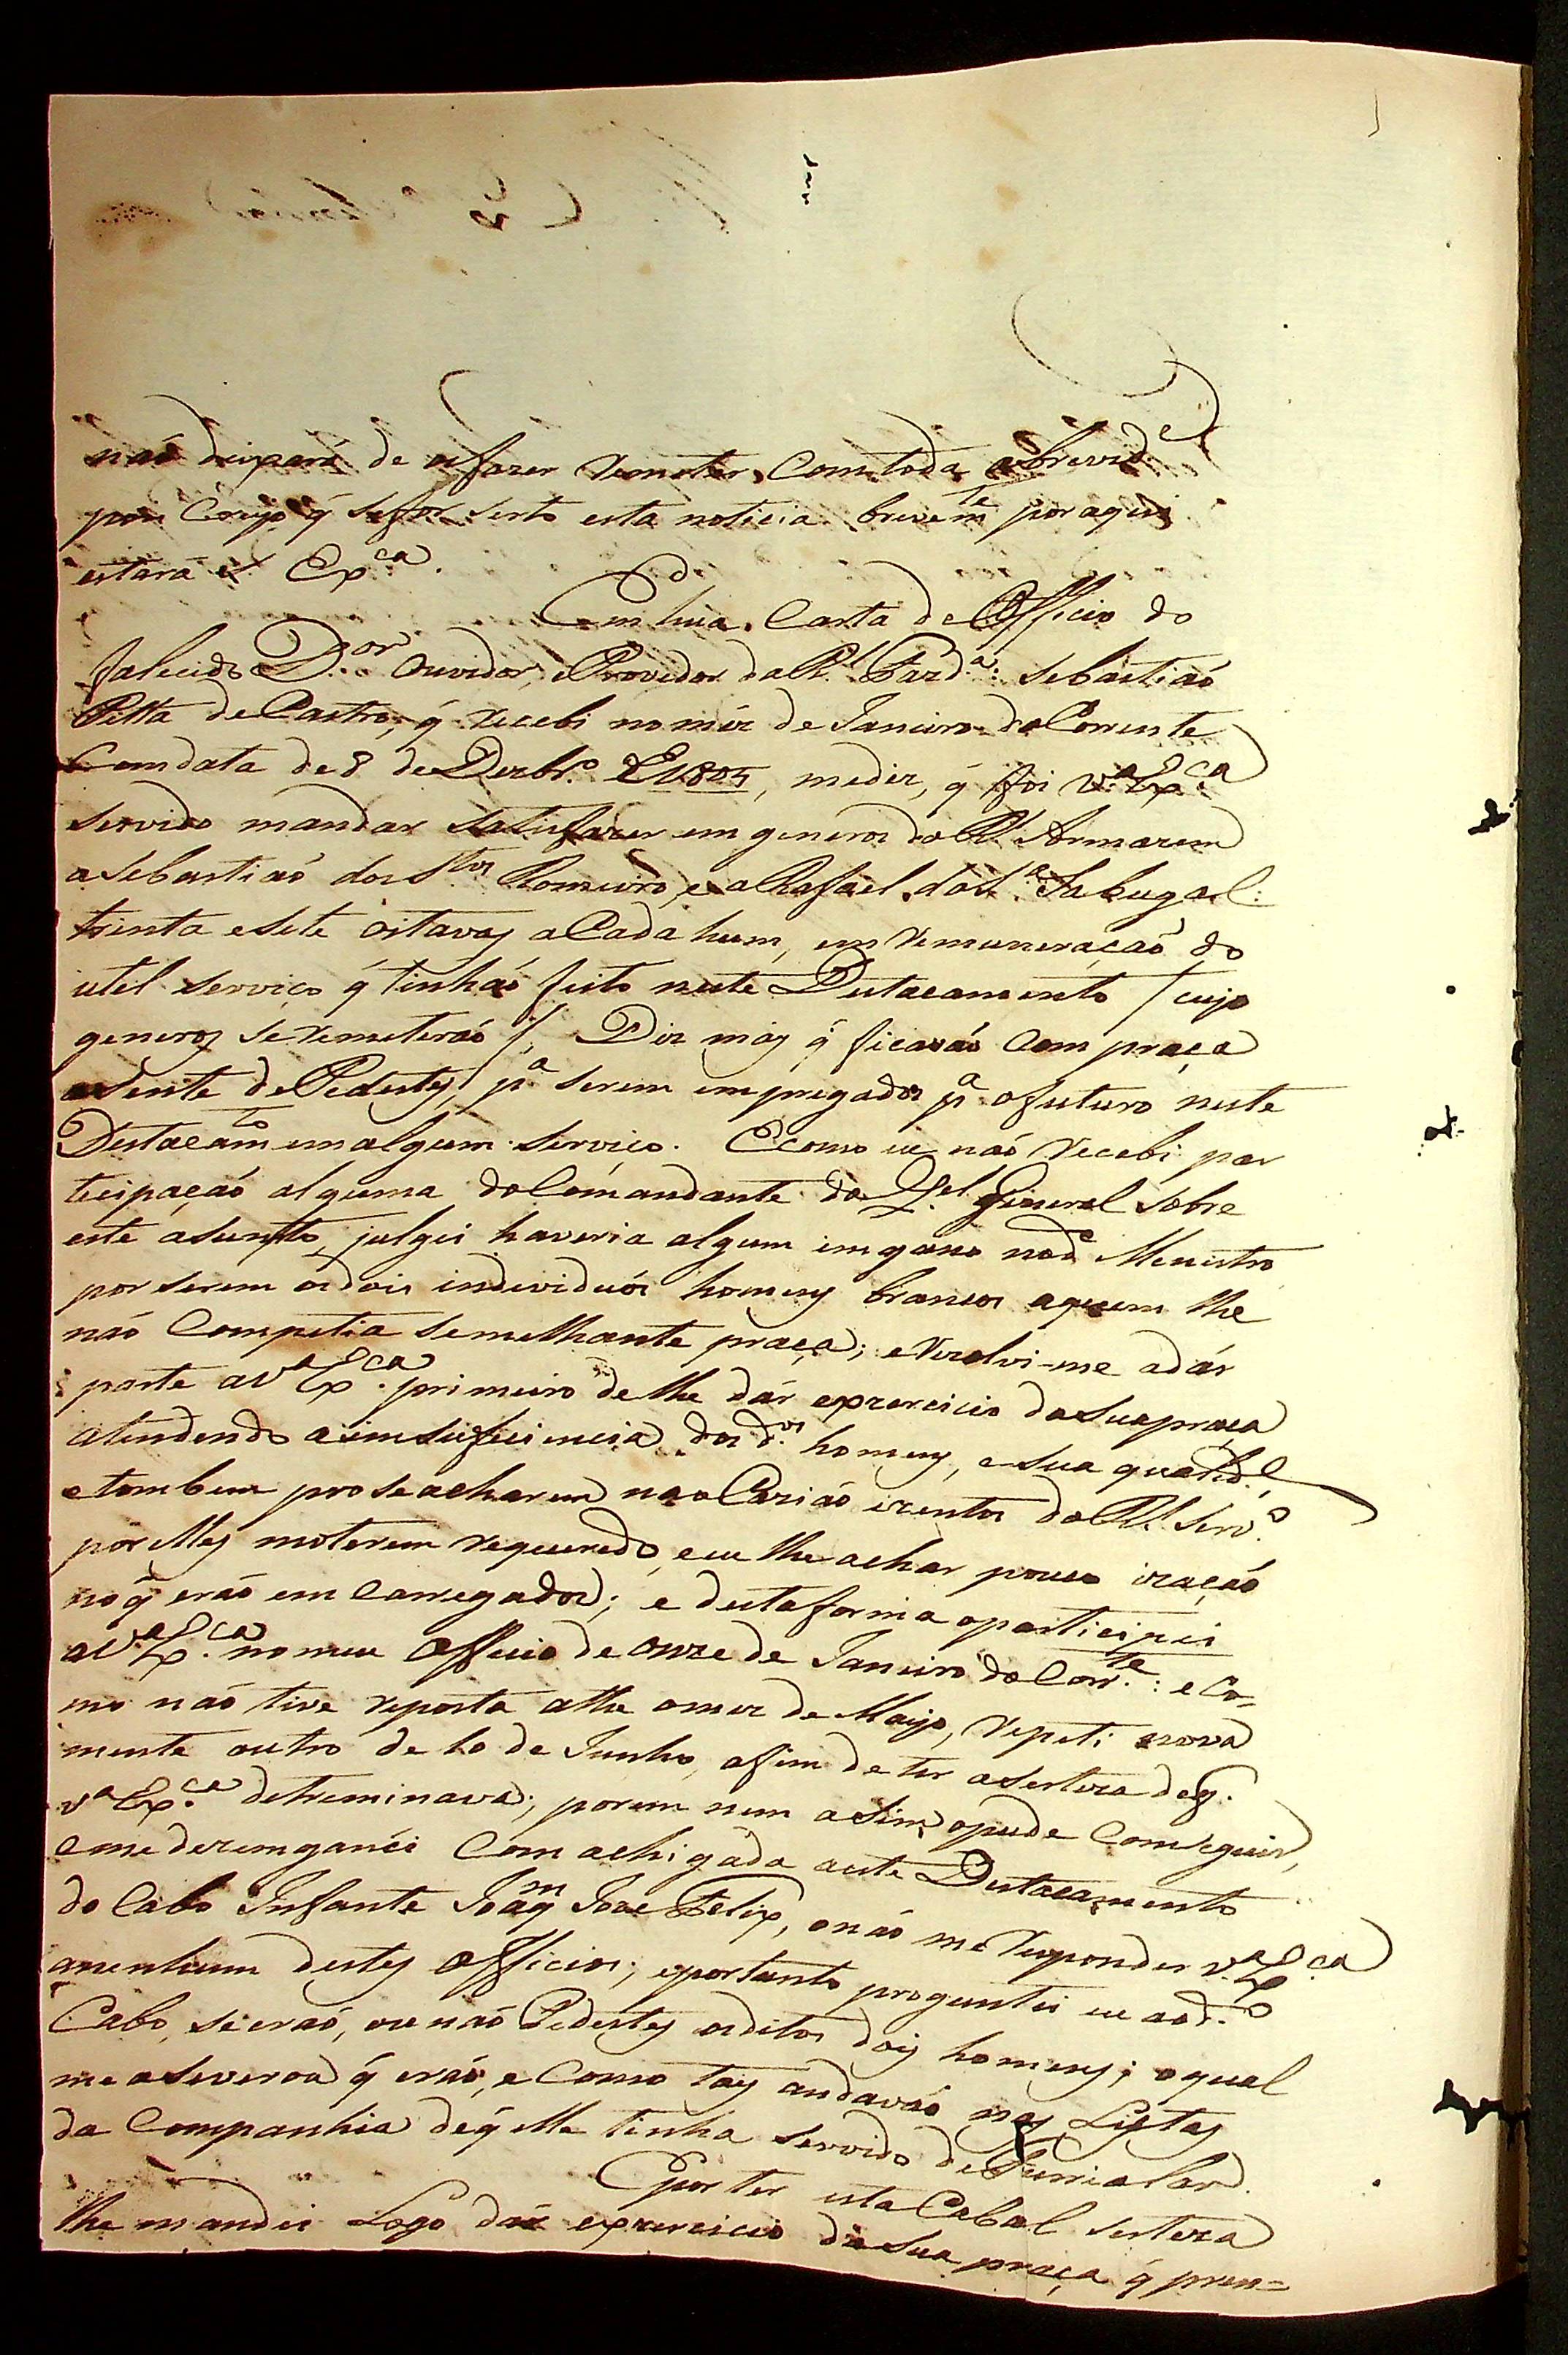 naõ deixará de as fazer remeter, com toda a brevid.e
pois Creyo q̃ se for serto esta noticia brevem.te por aqui
estará V. Ex.ca.
Em hũa Carta de Officio do
falecido D.or Ouvidor, e Provedor da R.l Fazd.a Sebastiaõ
Pitta de Castro, q̃ recebi no mez de Janeiro do Corrente
Com data de 8 de Dezbr.o de 1805, me diz, q̃ foi V.a Ex.ca
servido mandar satisfazer em generos do R.l Armazem
a Sebastiaõ dos S.tos Romeiro, e a Rafael da S.a Sabugal:
trinta e sete oitavas a Cada hum, em remuneraçaõ do
util serviço q̃ tinhaõ feito neste Destacamento / cujos
generos se remeteraõ /, Diz mais q̃ ficaraõ Com praça
asente de Pedestes, p.a serem empregados p.a o futuro neste
Destacam.to em algum serviço. E como eu naõ recebi par
ticipaçaõ alguma do Comandante do Q.el General sobre
este asumpto, julgei haveria algum imgano no d.o Menistro
por serem os dois individuos homens brancos a quem lhe
naõ Competia semelhante praça; e rezolvi-me a dár
parte a V.a Ex.ca primeiro de lhe dár exzercicio da sua praça
atendendo a imsuficiencia dos d.os homens, e sua qualid.e
e tambem pro se acharem na oCaziaõ izentos do R.l Serv.o
por elles mo terem requerido, e eu lhe achar pouca izaçaõ
no q̃ eraõ em carregados; e desta forma o participei
a V.a Ex.ca no meu Officio de onze de Janeiro do Corr.te: e Co-
mo naõ tive reposta athe o mez de Mayo, repeti nova
mente outro de 10 de Junho, afim de ter a serteza do q̃.
V.a Ex.ca detreminava; porem nem asim o pude Comseguir,
e me dezemganei Com a chigada a este Destacamento
do Cabo Infante Joaq.m Joze Felix, o naõ me responder V.a Ex.ca
a nenhum destes Officios; e portanto proguntei eu ao d.o
Cabo, se eraõ, ou naõ Pedestes os ditos dois homens; o qual
me aseverou q̃ eraõ, e Como tais andavaõ nas Listas
da Companhia de q̃ elle tinha servido de Furriel an.d
E por ter esta Cabal serteza
lhe mandei Logo dár exzercicio da sua praça q̃ prin=